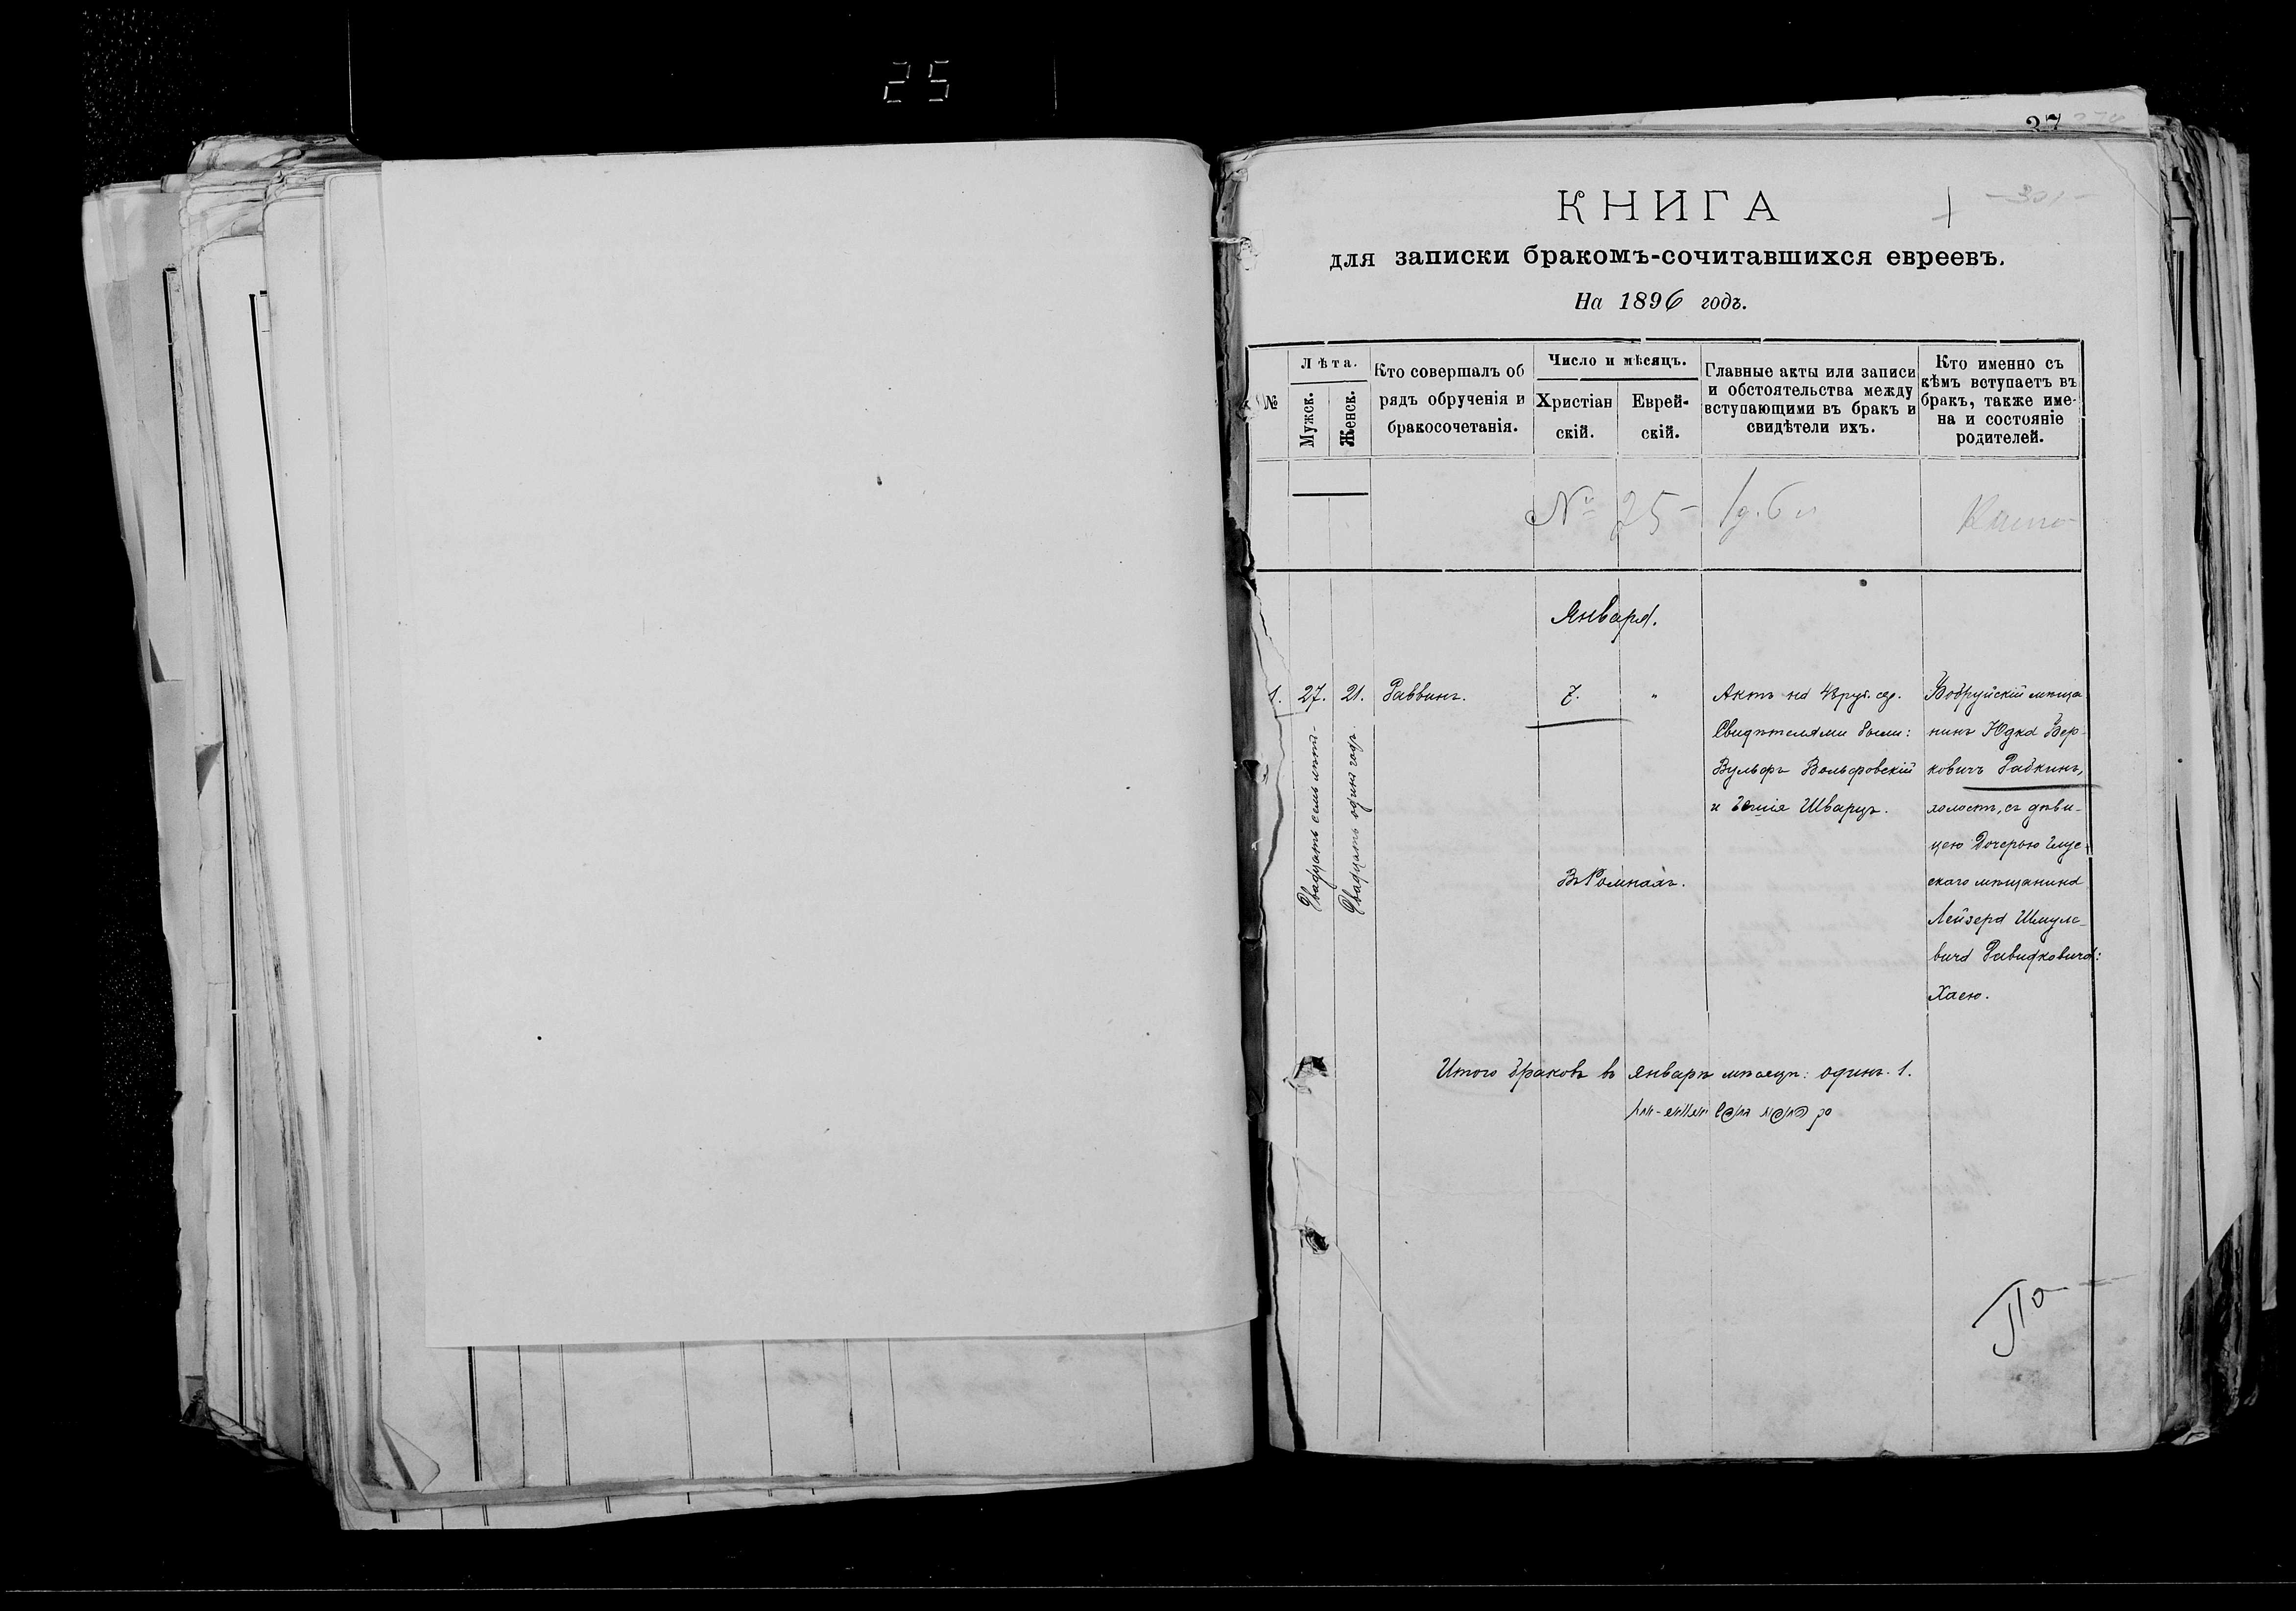 25
37 278
КНИГА
— 301 —
для записки бракомъ-сочитавшихся евреевъ.
На 1896 годъ.
№
Лѣта.
Мужск.
Женск.
Кто совершалъ об
рядъ обрученія и
бракосочетанія.
Число и мѣсяцъ.
Христіан
скій.
Еврей-
скій.
Главные акты или записи
и обстоятельства между
вступающими въ бракъ и
свидѣтели ихъ.
Кто именно съ
кѣмъ вступаетъ въ
бракъ, также име-
на и состояніе
родителей.
№ 25 -
Января.
1.
27.
Двадцать семь лѣтъ-
21.
Двадцать одинъ годъ
Раввинъ.
7.
"
Въ Ромнахъ.
Актъ на 48 руб. сер.
Свидѣтелями были:
Вульфъ Вольфовскій
и Шварцъ.
Бобруйскій мѣща
нинъ Юдка Бер-
ковичъ Рабкинъ,
холостъ, съ дѣви-
цею Дочерью Глус-
скаго мѣщанина
Лейзера Шмуле-
вича Давидковича:
Хаею.
Итого браковъ въ январѣ мѣсяцѣ: одинъ. 1.
По